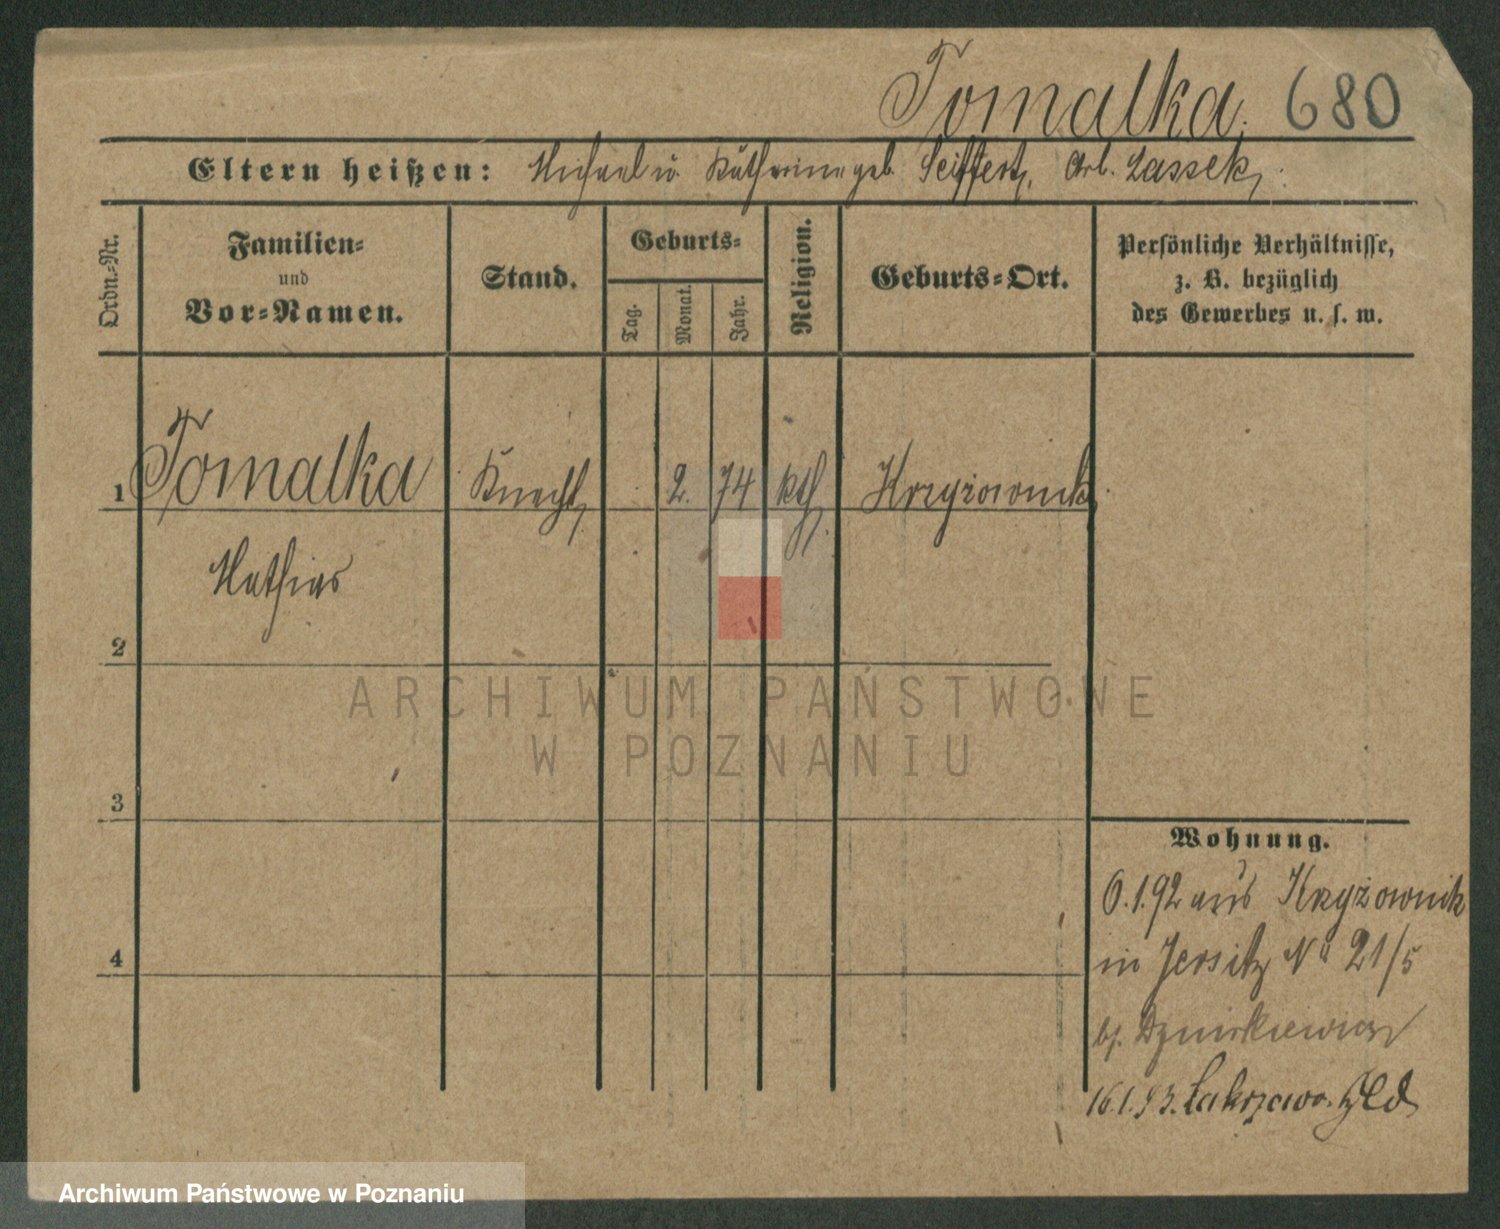 Tomalka. 680
Eltern heißen: Michael u. Katharine geb. Seiffert, Arb. Lassek,
Ordn.=Nr.
Familien=
und
Vor=Namen.
Stand.
Geburts=
Tag.
Monat.
Jahr.
Religion.
Geburts=Ort.
Persönliche Verhältnisse,
z. B. bezüglich
des Gewerbes u. s. w.
1 Tomalka Knecht 2. 74 kth. Krzyżownik
Mathias
2
3
4
Wohnung.
6.1.92 aus Krzyżownik
in Jersitz No 21/5
b/.
16.1.93.
ARCHIWUM PAŃSTWOWE
W POZNANIU
Archiwum Państwowe w Poznaniu